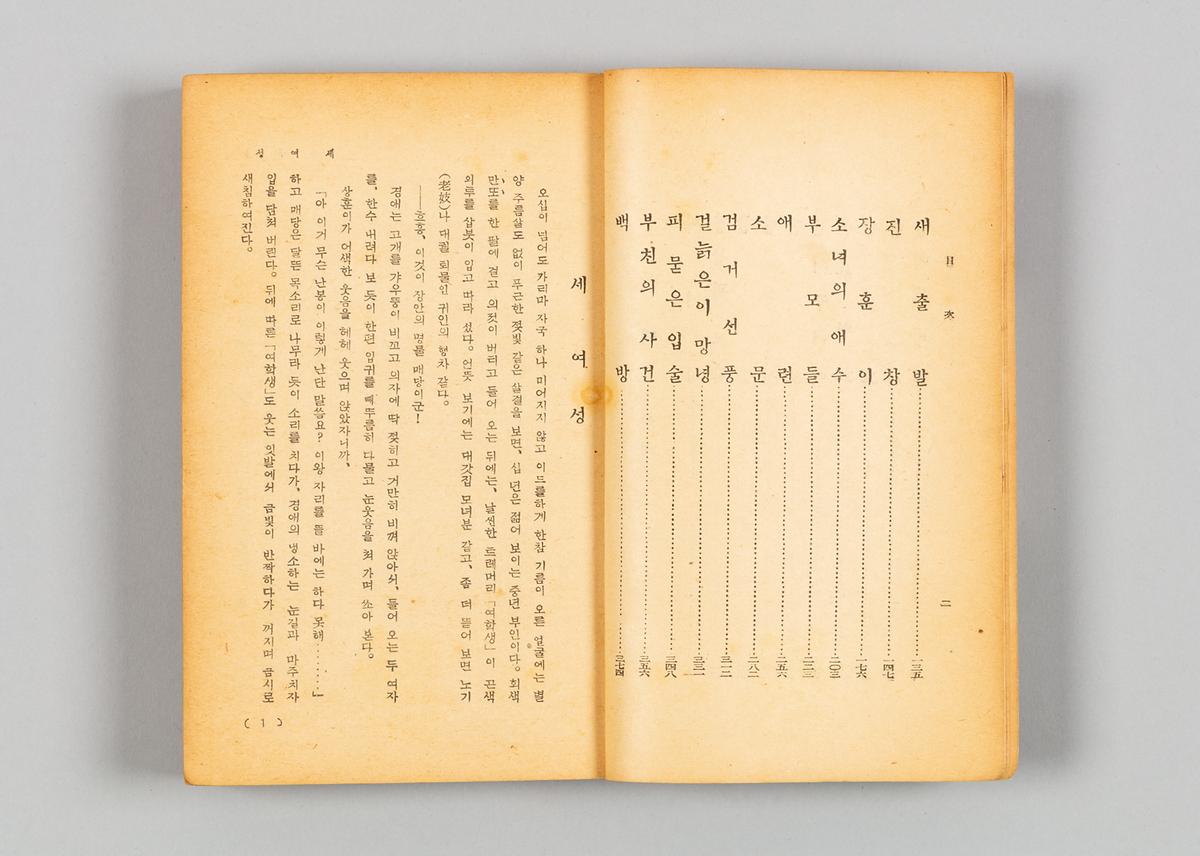 目次
새출발 一三五
진창 一四七
장훈이 一七六
소녀의 애수 二〇三
부모들 二二三
애련 二五六
소문 二八二
검거선풍 三一二
걸늙은이 망녕 三三一
피 묻은 입술 三四八
부친의 사건 三五六
백방 三七四
二
세여성
오십이 넘어도 가리마 자국 하나 미어지지 않고 이드를하게 한참 기름이 오른 얼굴에는 별
양 주름살도 없이 푸근한 젖빛 같은 살결을 보면, 십 년은 젊어 보이는 중년 부인이다。회색
만또를 한 팔에 걸고 의젓이 버티고 들어 오는 뒤에는, 날씬한 트레머리「여학생」이 끈색
외투를 삽붓이 입고 따라 섰다。언뜻 보기에는 대갓집 모녀분 같고, 좀 더 뜯어 보면 노기
(老妓)나 대궐 퇴물인 귀인의 행차 같다。
──흐흥, 이것이 장안의 명물 매당이군!
경애는 고개를 갸우뚱이 비꼬고 의자에 딱 젖히고 거만히 비껴 앉아서, 들어 오는 두 여자
를, 한수 내려다 보듯이 한편 입귀를 빼뚜름히 다물고 눈웃음을 쳐 가며 쏘아 본다。
상훈이가 어색한 웃음을 헤헤 웃으며 앉았자니까,
「아 이거 무슨 난봉이 이렇게 난단 말씀요? 이왕 자리를 뜰 바에는 하다 못해………」
하고 매당은 달뜬 목소리로 나무라 듯이 소리를 치다가, 경애의 냉소하는 눈길과 마주치자
입을 닫쳐 버린다。뒤에 따른「여학생」도 웃는 잇발에서 금빛이 반짝하다가 꺼지며 금시로
새침하여진다。
세여성
(1)